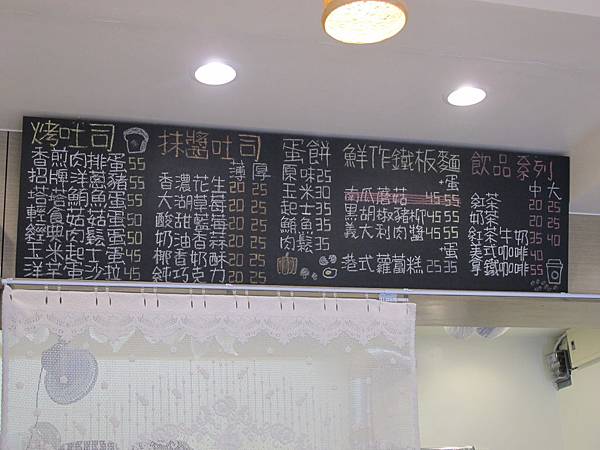 烤吐司
香煎肉排蛋 55
招牌洋蔥豬 55
塔塔鮪魚蛋 55
輕食菇菇蛋 50
經典肉鬆蛋 50
玉米起士蛋 45
洋芋蛋沙拉 45
抹醬吐司
薄 厚
香濃花生 20 25
大湖草莓 20 25
酸甜藍莓 20 25
奶油香蒜 20 25
椰香奶酥 20 25
巧克力 20 25
蛋餅
原味 25
玉米 30
起士 35
鮪魚 35
肉鬆 35
鮮作鐵板麵
+蛋
南瓜蘑菇 45 55
黑胡椒豬柳 45 55
義大利肉醬 45 55
+蛋
港式蘿蔔糕 25 35
飲品系列
中 大
紅茶 20 25
奶茶 20 25
紅茶牛奶 35 40
美式咖啡 40
拿鐵咖啡 55